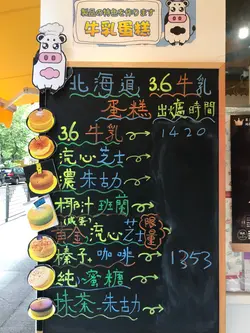 製品の特色を作ります
牛乳蛋糕
北海道 3.6牛乳
蛋糕 出爐時間
3.6 牛乳 → 1420
流心芝士 →
濃朱古力 →
椰汁班蘭 →
(咸蛋)
黃金流心芝士 限量
榛子咖啡 → 1353
純心蜜糖 →
抹茶朱古力 →